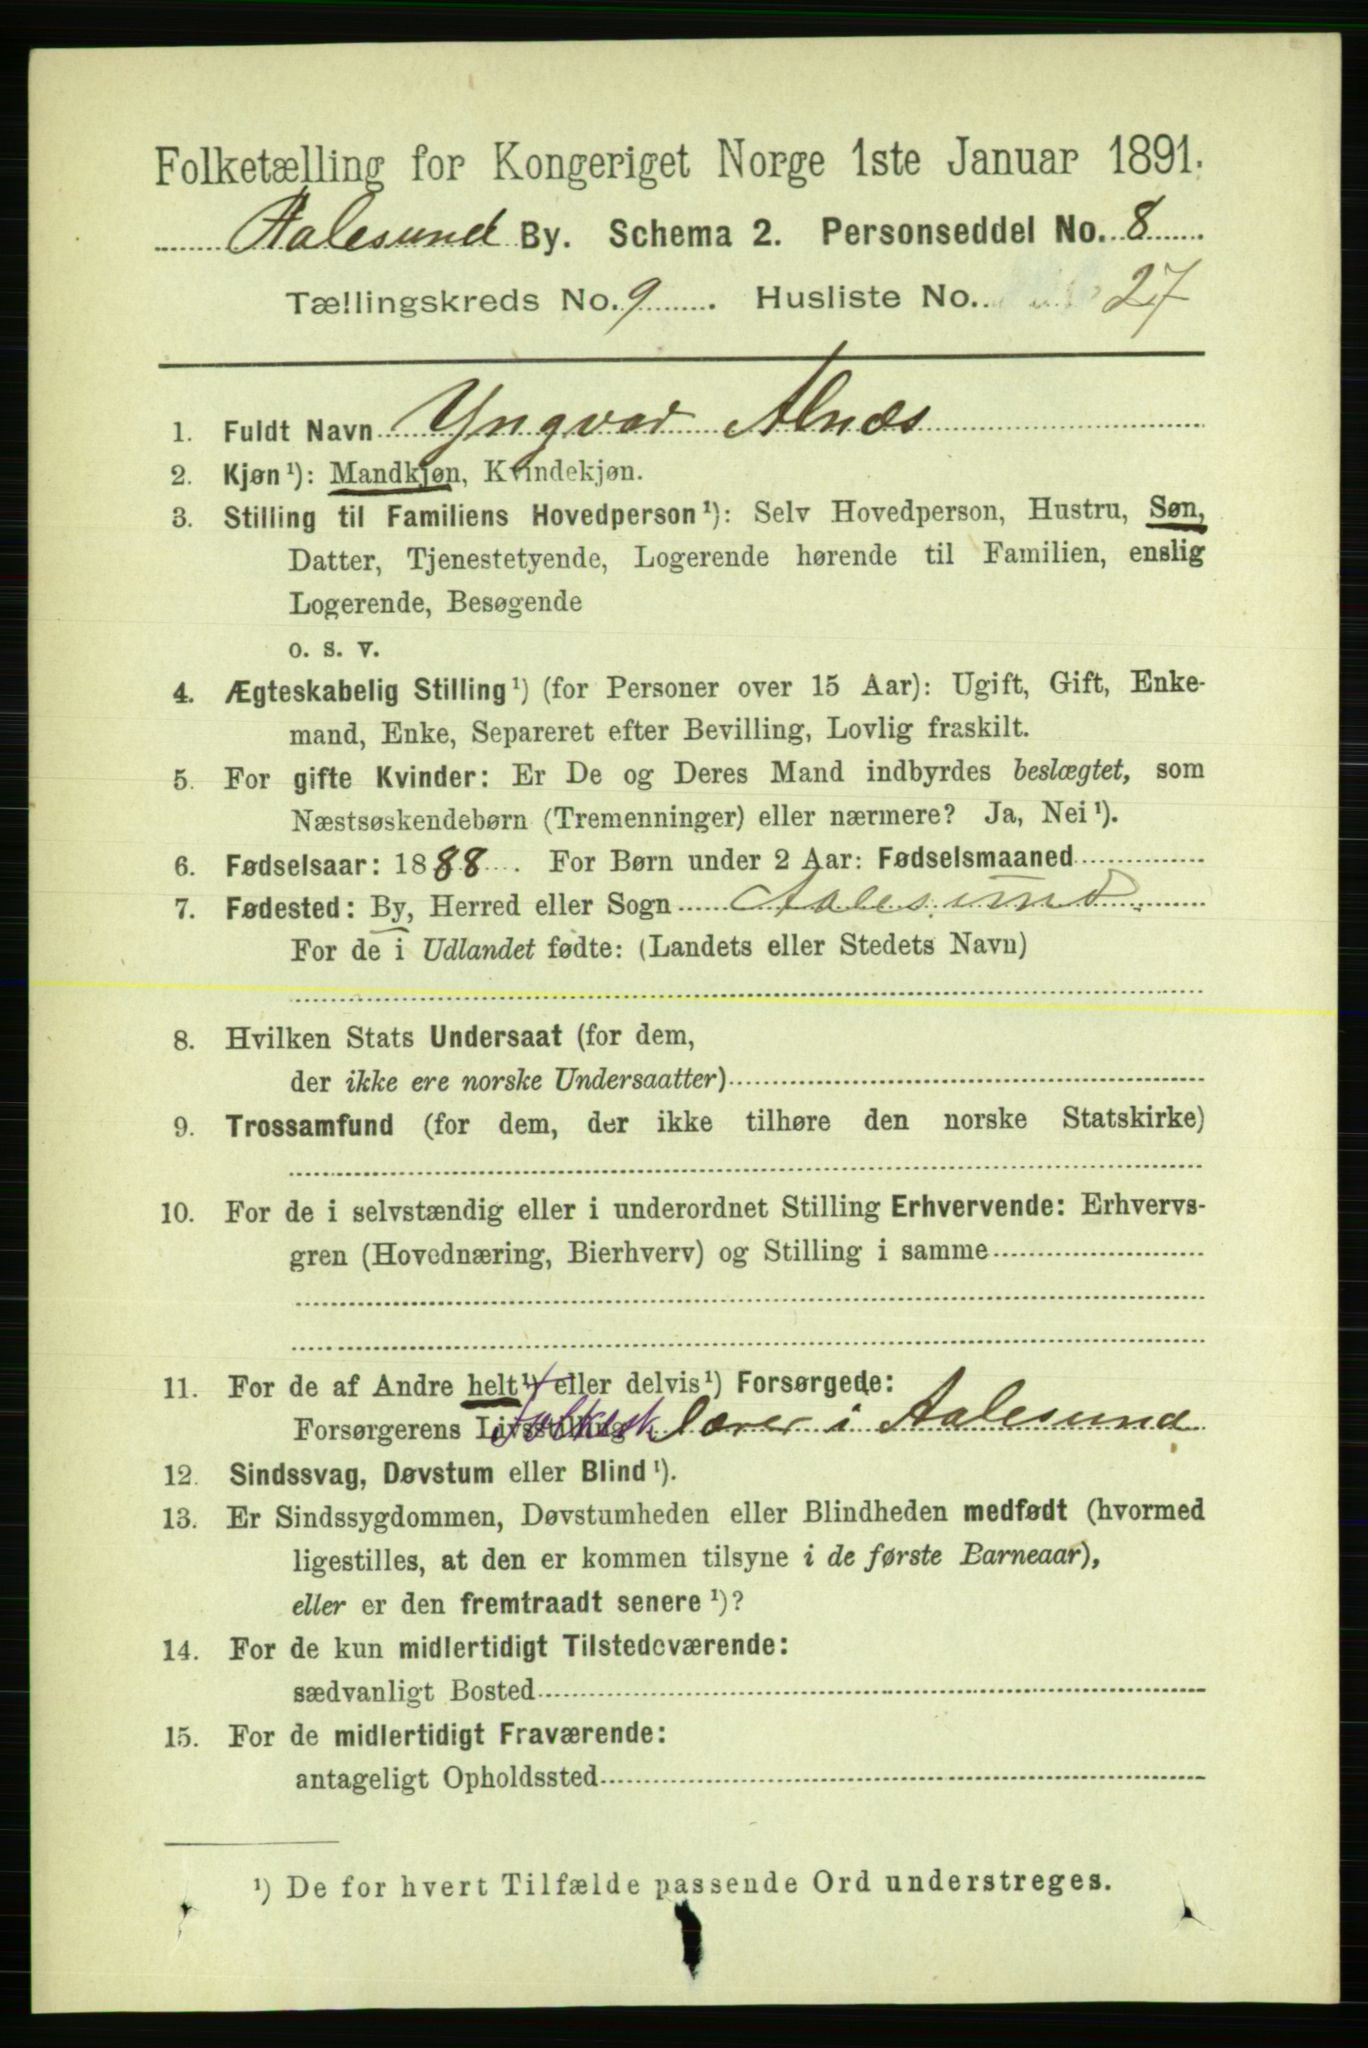 Folketælling for Kongeriget Norge 1ste Januar 1891.
Aalesund By. Schema 2. Personseddel No. 8
Tællingskreds No. 9. Husliste No. 27
1. Fuldt Navn Yngvar Alnæs
2. Kjøn¹): Mandkjøn, Kvindekjøn.
3. Stilling til Familiens Hovedperson¹): Selv Hovedperson, Hustru, Søn,
Datter, Tjenestetyende, Logerende hørende til Familien, enslig
Logerende, Besøgende
o. s. v.
4. Ægteskabelig Stilling¹) (for Personer over 15 Aar): Ugift, Gift, Enke-
mand, Enke, Separeret efter Bevilling, Lovlig fraskilt.
5. For gifte Kvinder: Er De og Deres Mand indbyrdes beslægtet, som
Næstsøskendebørn (Tremenninger) eller nærmere? Ja, Nei¹).
6. Fødselsaar: 1888. For Børn under 2 Aar: Fødselsmaaned
7. Fødested: By, Herred eller Sogn Aalesund
For de i Udlandet fødte: (Landets eller Stedets Navn)
8. Hvilken Stats Undersaat (for dem,
der ikke ere norske Undersaatter)
9. Trossamfund (for dem, der ikke tilhøre den norske Statskirke)
10. For de i selvstændig eller i underordnet Stilling Erhvervende: Erhvervs-
gren (Hovednæring, Bierhverv) og Stilling i samme
11. For de af Andre helt¹) eller delvis¹) Forsørgede:
Forsørgerens Livsstilling Folkesk lærer i Aalesund
12. Sindssvag, Døvstum eller Blind¹).
13. Er Sindssygdommen, Døvstumheden eller Blindheden medfødt (hvormed
ligestilles, at den er kommen tilsyne i de første Barneaar),
eller er den fremtraadt senere¹)?
14. For de kun midlertidigt Tilstedeværende:
sædvanligt Bosted
15. For de midlertidigt Fraværende:
antageligt Opholdssted
¹) De for hvert Tilfælde passende Ord understreges.